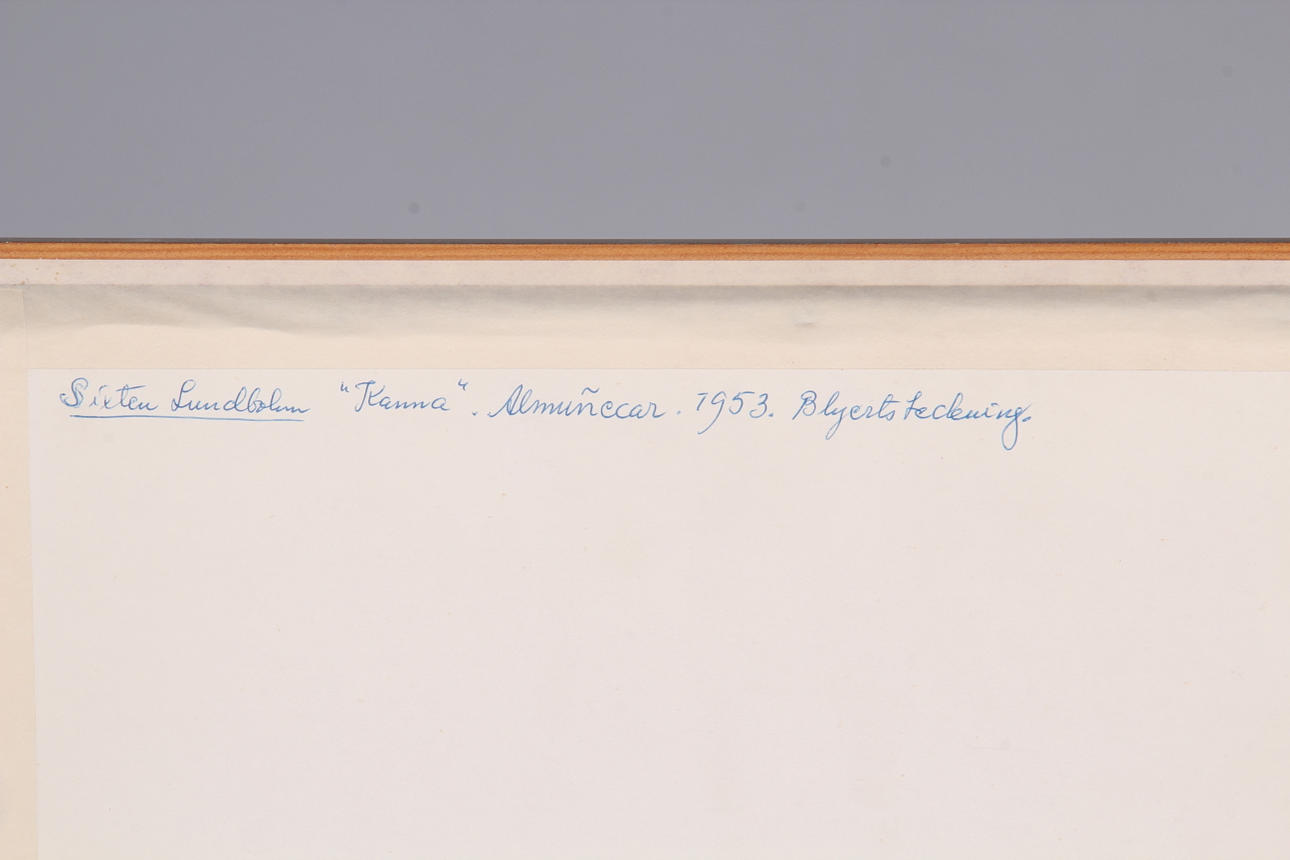 Sixten Lundbohm "Kanna". Almuñeccar. 1953. Blyertsteckning.